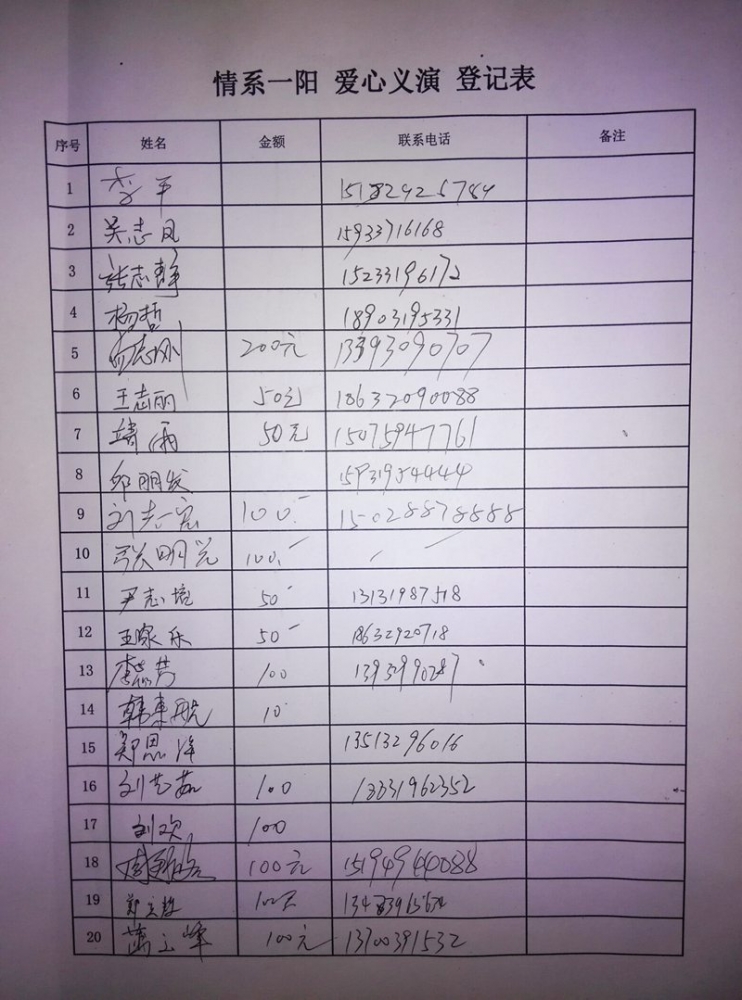 情系一阳 爱心义演 登记表
序号 姓名 金额 联系电话 备注
1 李平
2 吴志凤 15933716168
3 张志静 15233196172
4 杨哲 18903195331
5 志刚 200元 13393090707
6 王志丽 50元 18632090088
7 靖雨 50元 15075947761
8 邱朋发 15931954444
9 刘志宽 100.- 15028878888
10 张明 100.-
11 尹志境 50- 13131987518
12 王家乐 50- 18632920718
13 100
14 韩東 10
15 郑思洋 13513296016
16 刘艺茹 100 13331962352
17 刘欢 100
18 100元 15194944088
19 郑立 100元
20 立峰 100元 13700391532